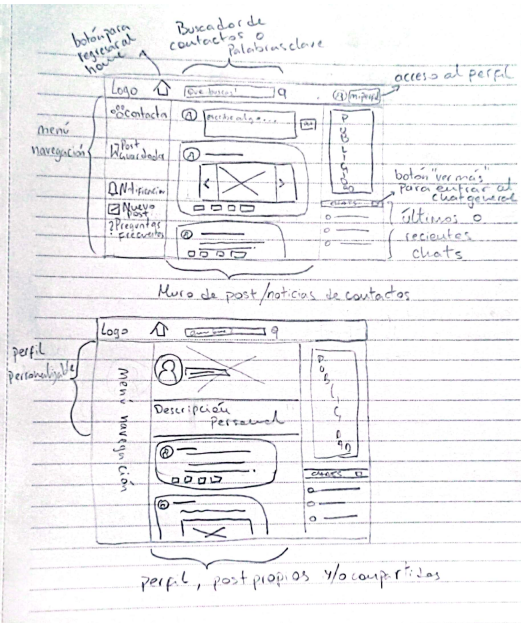 botón para
regresar al
home
Buscador de
contactos o
Palabras clave
acceso al perfil
Logo
Que buscas?
mi perfil
menú
navegación
Contacto
Post
Guardado
Notificación
Nuevo
post
?Preguntas
Frecuentes
escribe algo...
PUBLICIDAD
CHATS
botón "ver más"
para entrar al
chat general
últimos o
recientes
chats
Muro de post/noticias de contactos
Logo
perfil
personalizable
Menú navegación
Descripción
Personal
PUBLICIDAD
CHATS
perfil, post propios y/o compartidos